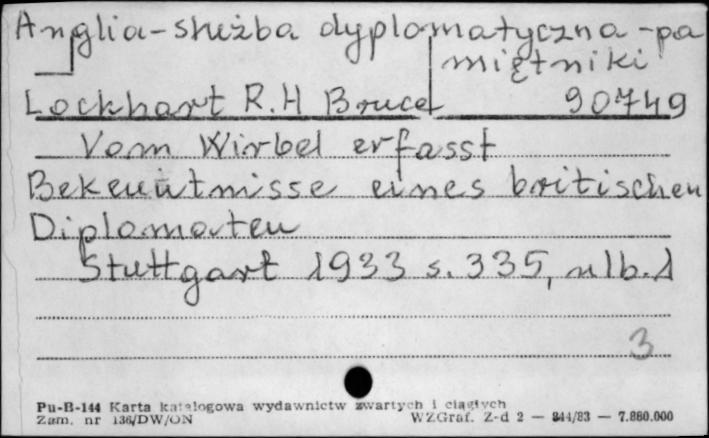 Anglia-służba dyplomatyczna-pa
miętniki
Lockhart R.H Bruce 90749
Vom Wirbel erfasst
Bekenntnisse eines britischen
Diplomaten
Stuttgart 1933 s. 335, nlb. 1
3
Pu-B-144 Karta katalogowa wydawnictw zwartych i ciągłych
Zam. nr 136/DW/ON WZGraf. Z-d 2 — 844/83 — 7.860.000